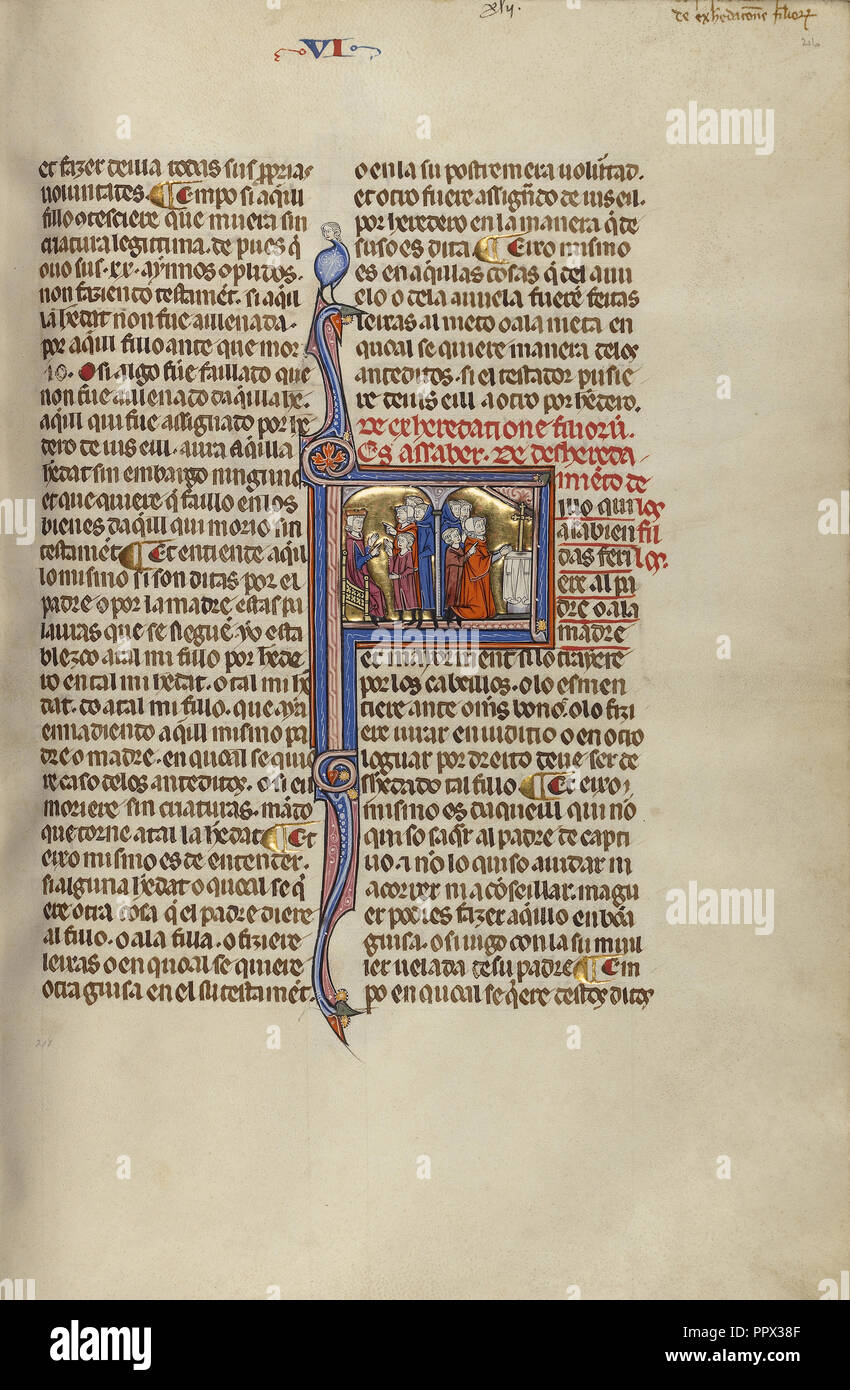 xlv.
de exhedacone filiorz
VI
216
et fazer deilla todas sus pprias
uoluntates. Empo si aqill
fillo otesciere que muera sin
criatura legittima. de pues q
ouo sus .xx. aynnos oplidos.
non faziendo testament. si aqll
la hedat non fue aillenada.
por aqill fillo ante que mor
io. O si algo fue faillado que
non fue aillenado daqilla he.
aqill qui fue assignado por he
dero de uis eill. aura aqilla
hedat sin embargo ninguno
et que quiere q faillo en los
bienes daqill qui morio sin
testament Et entiende aqll
lo mismo si son ditas por el
padre o por la madre estas pa
lauras que se siegue. yo esta
blezco atal mi fillo por hede
ro en tal mi hedat. o tal mi he
dat. do atal mi fillo. que aya
ennadiendo aqill mismo pa
dre o madre. en qual se quie
re caso delos anteditos. o si eil
moriere sin criaturas. mado
que torne atal la hedat Et
eixo mismo es de entender.
si alguna hedat o qual se q
ere otra cosa q el padre diere
al fillo. o ala filla. o fiziere
leixas o en qual se quiere
otra guisa en el su testament.
218
o en la su postremera uoluntad.
et otro fuere assignado de uis eil.
por heredero en la manera q de
suso es dita. Eixo mismo
es en aqillas cosas q del auu
elo o dela auuela fuere feitas
leixas al nieto o ala nieta en
qual se quiere manera delos
anteditos. si el testador pusie
re deuis eill a otro por hedero.
De exheredatione filiorum.
Es assaber. De deshereda
miento de
los
fillos.
illo qui
a sabien
das feri
ere al pa
dre o ala
madre
et mayor ment si lo trayere
por los cabeillos. o lo esmen
tiere ante oms bonos. o lo fizi
ere iurar en iuditio o en otro
loguar por dreito deue ser de
shedado tal fillo Et eixo
mismo es daqueill qui no
quiso saqr al padre de capti
uo. i no lo quiso aiudar ni
acorrer ni a coseillar. magu
er podies fazer aqillo en bona
guisa. o si iugo con la su muil
ier uelada de su padre Em
po en qual se qere destos ditos
a
alamy
alamy
Image ID: PPX38F
www.alamy.com